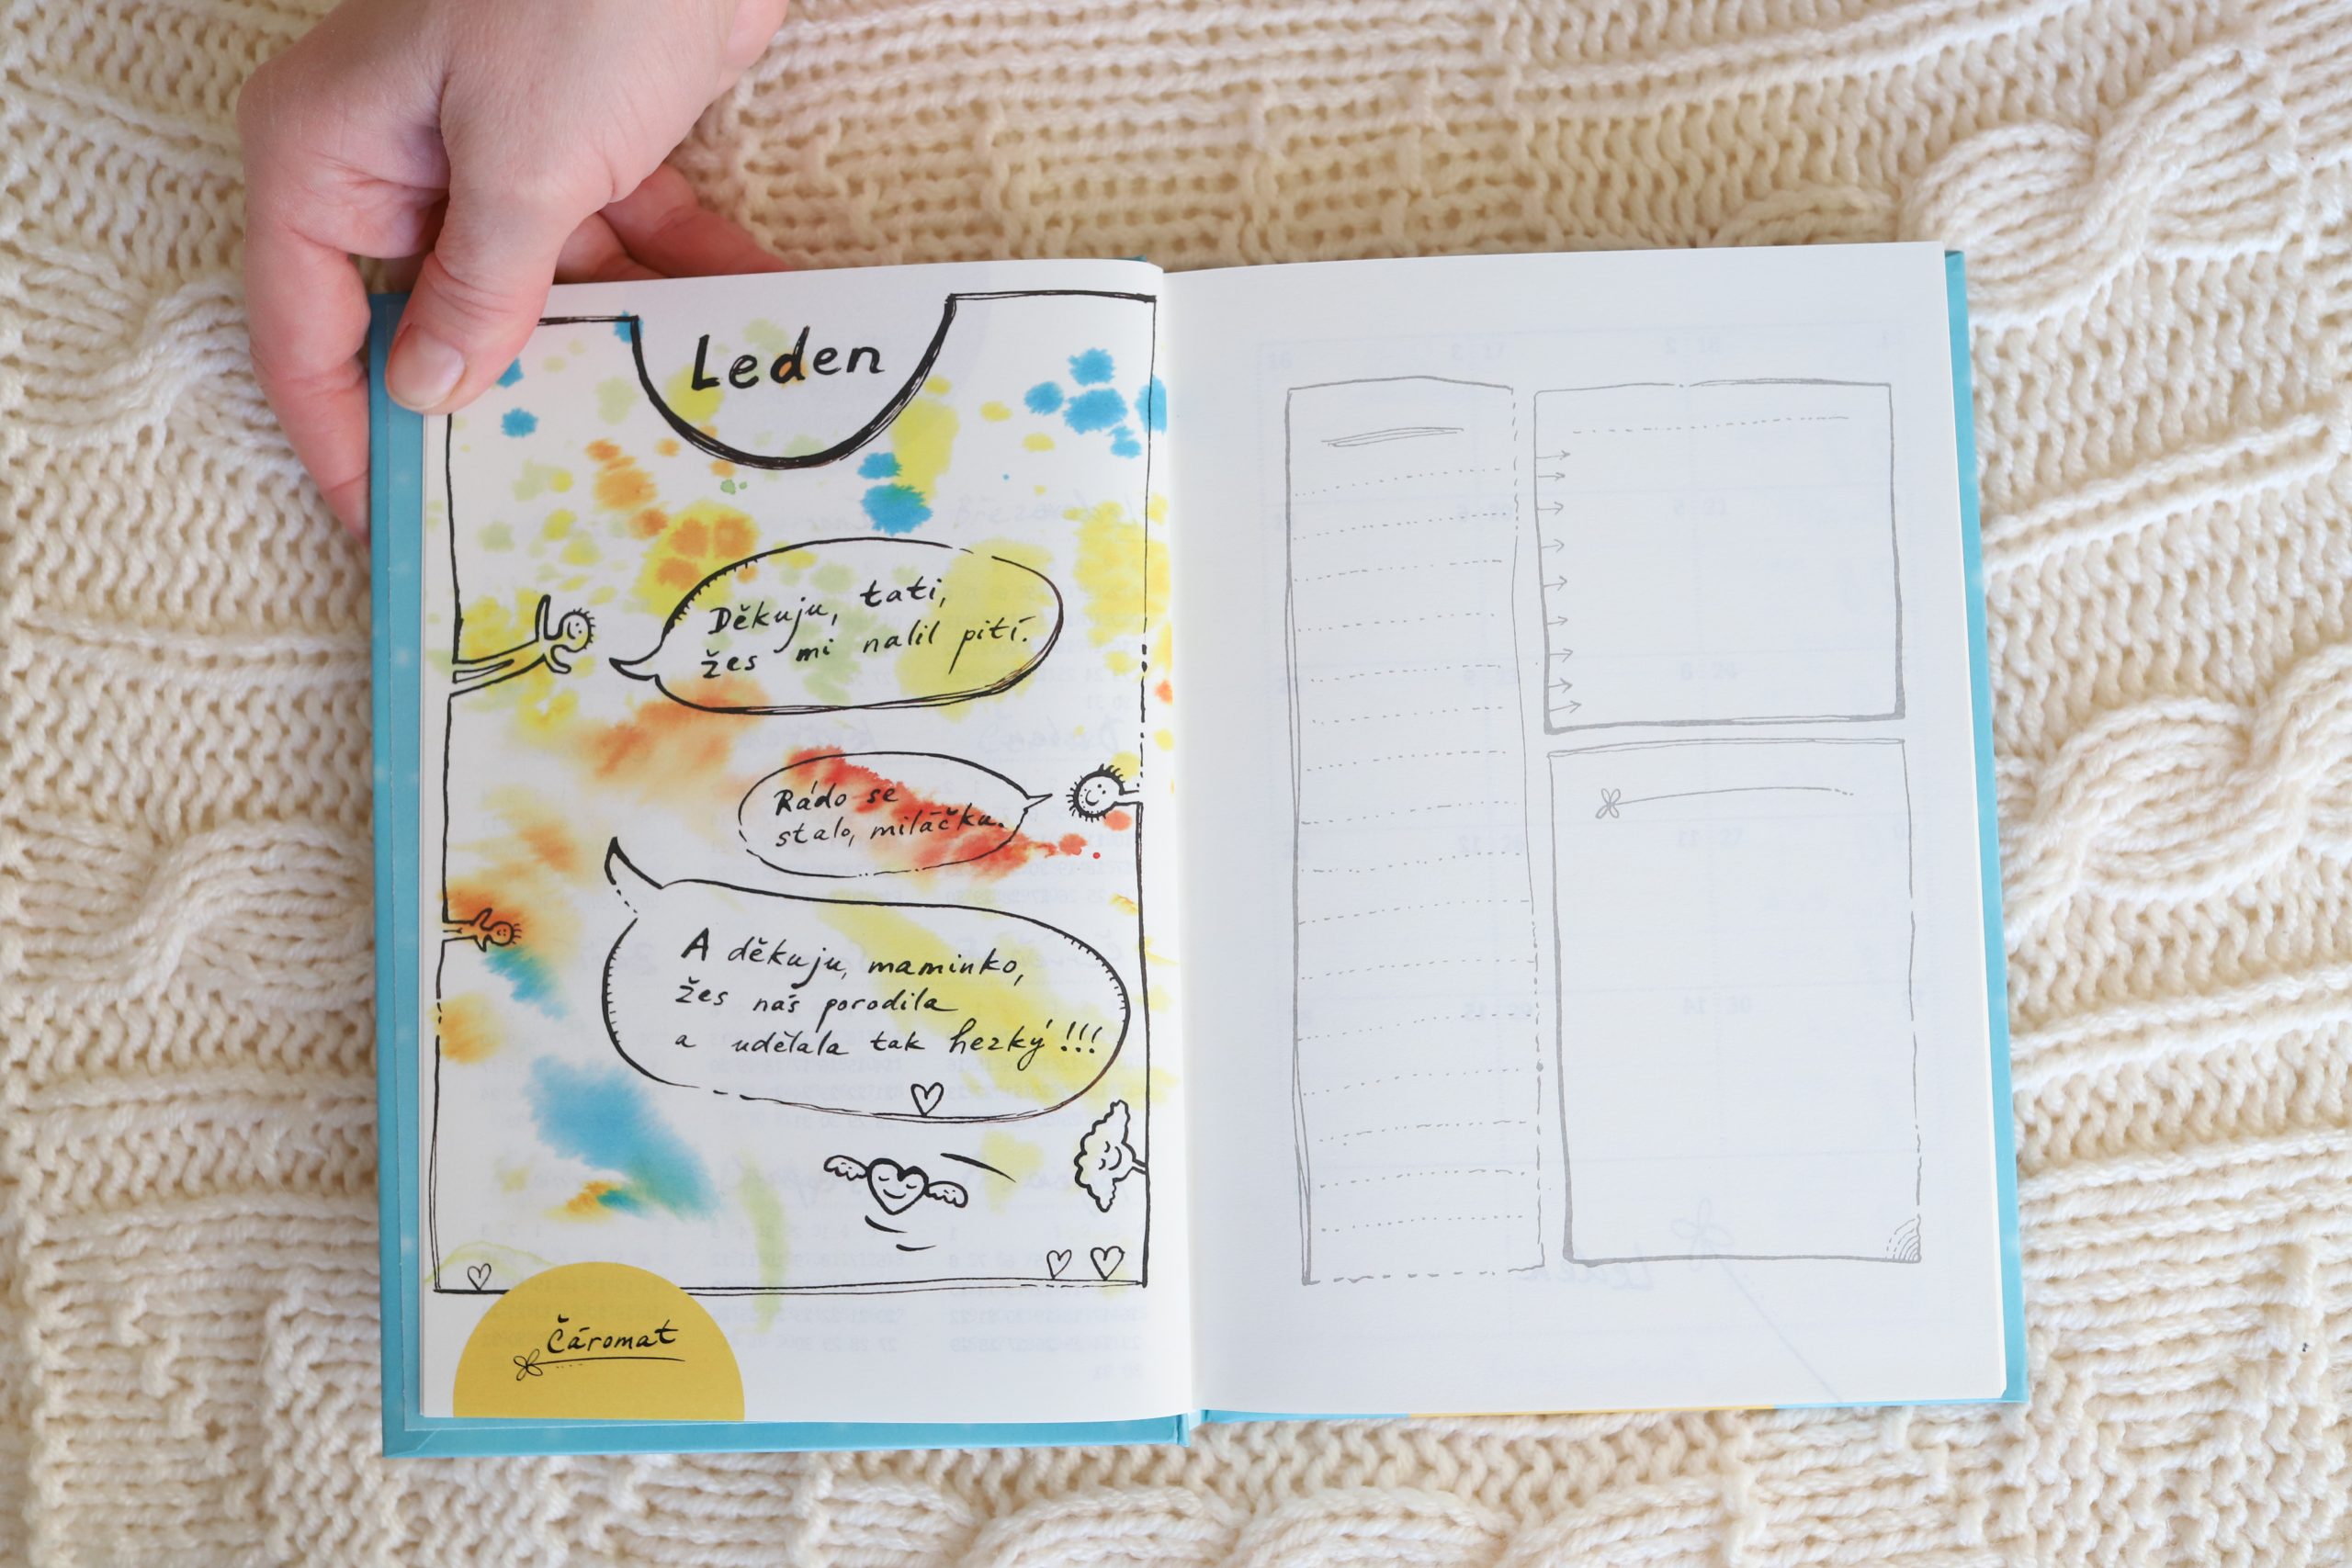 Leden
Děkuju, tati,
žes mi nalil pití.
Rádo se
stalo, miláčku.
A děkuju, maminko,
žes nás porodila
a udělala tak hezký!!!
Čáromat